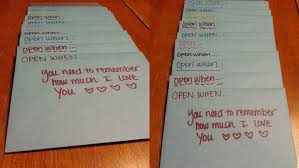 OPEN WHEN...
Open when...
OPEN WHEN...
Open when...
OPEN WHEN...
you need to remember
how much I love
you ♡ ♡ ♡ ♡
OPEN WHEN...
Open when...
OPEN WHEN...
Open when...
OPEN WHEN...
Open when...
OPEN WHEN...
you need to remember
how much I love
you ♡ ♡ ♡ ♡